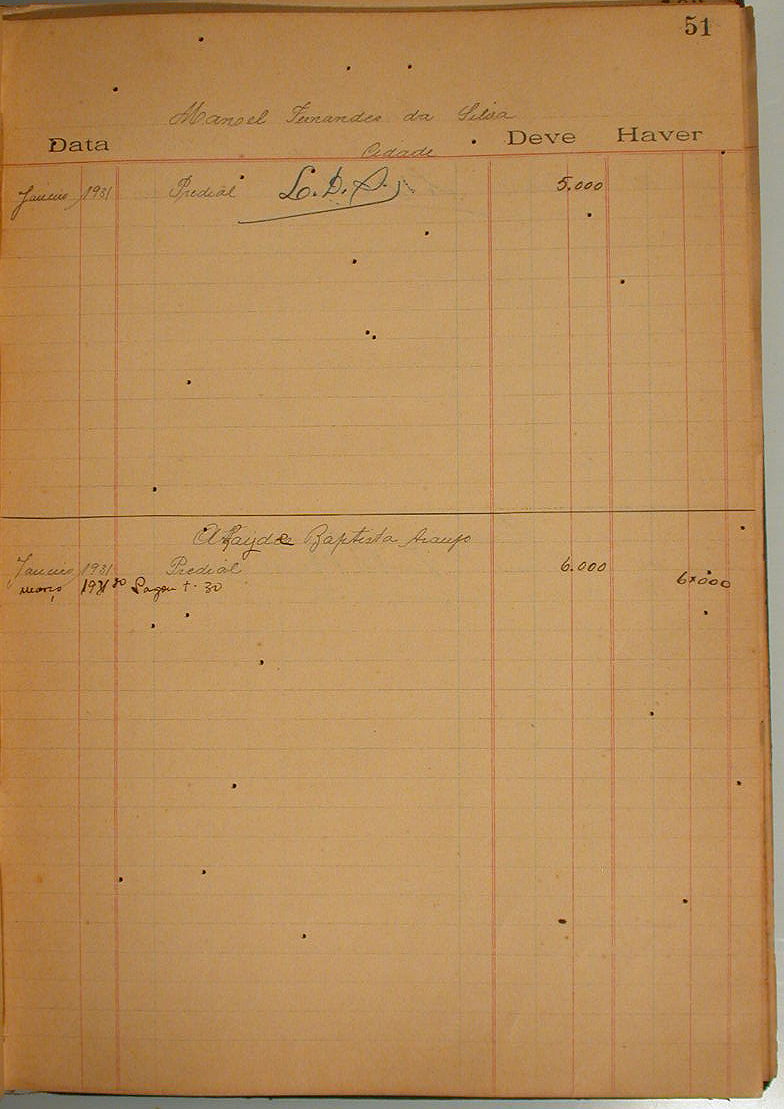 51
Manoel Fernandes da Silva
Data Deve Haver
Cidade
Janeiro 1931 Predial L.D.A. 5.000
Athayde Baptista Araujo
Janeiro 1931 Predial 6.000
março 1931 30 Pagou t. 30 6$000